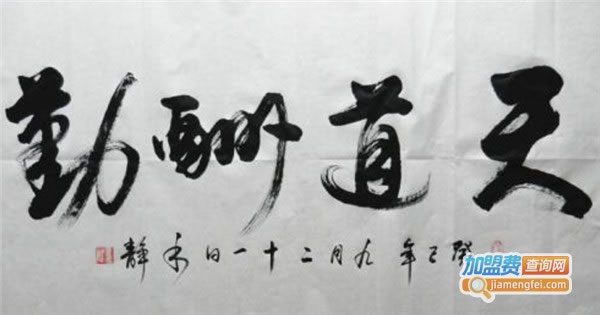 天道酬勤
癸巳年九月二十一日 禾静
加盟费查询网
jiamengfei.com